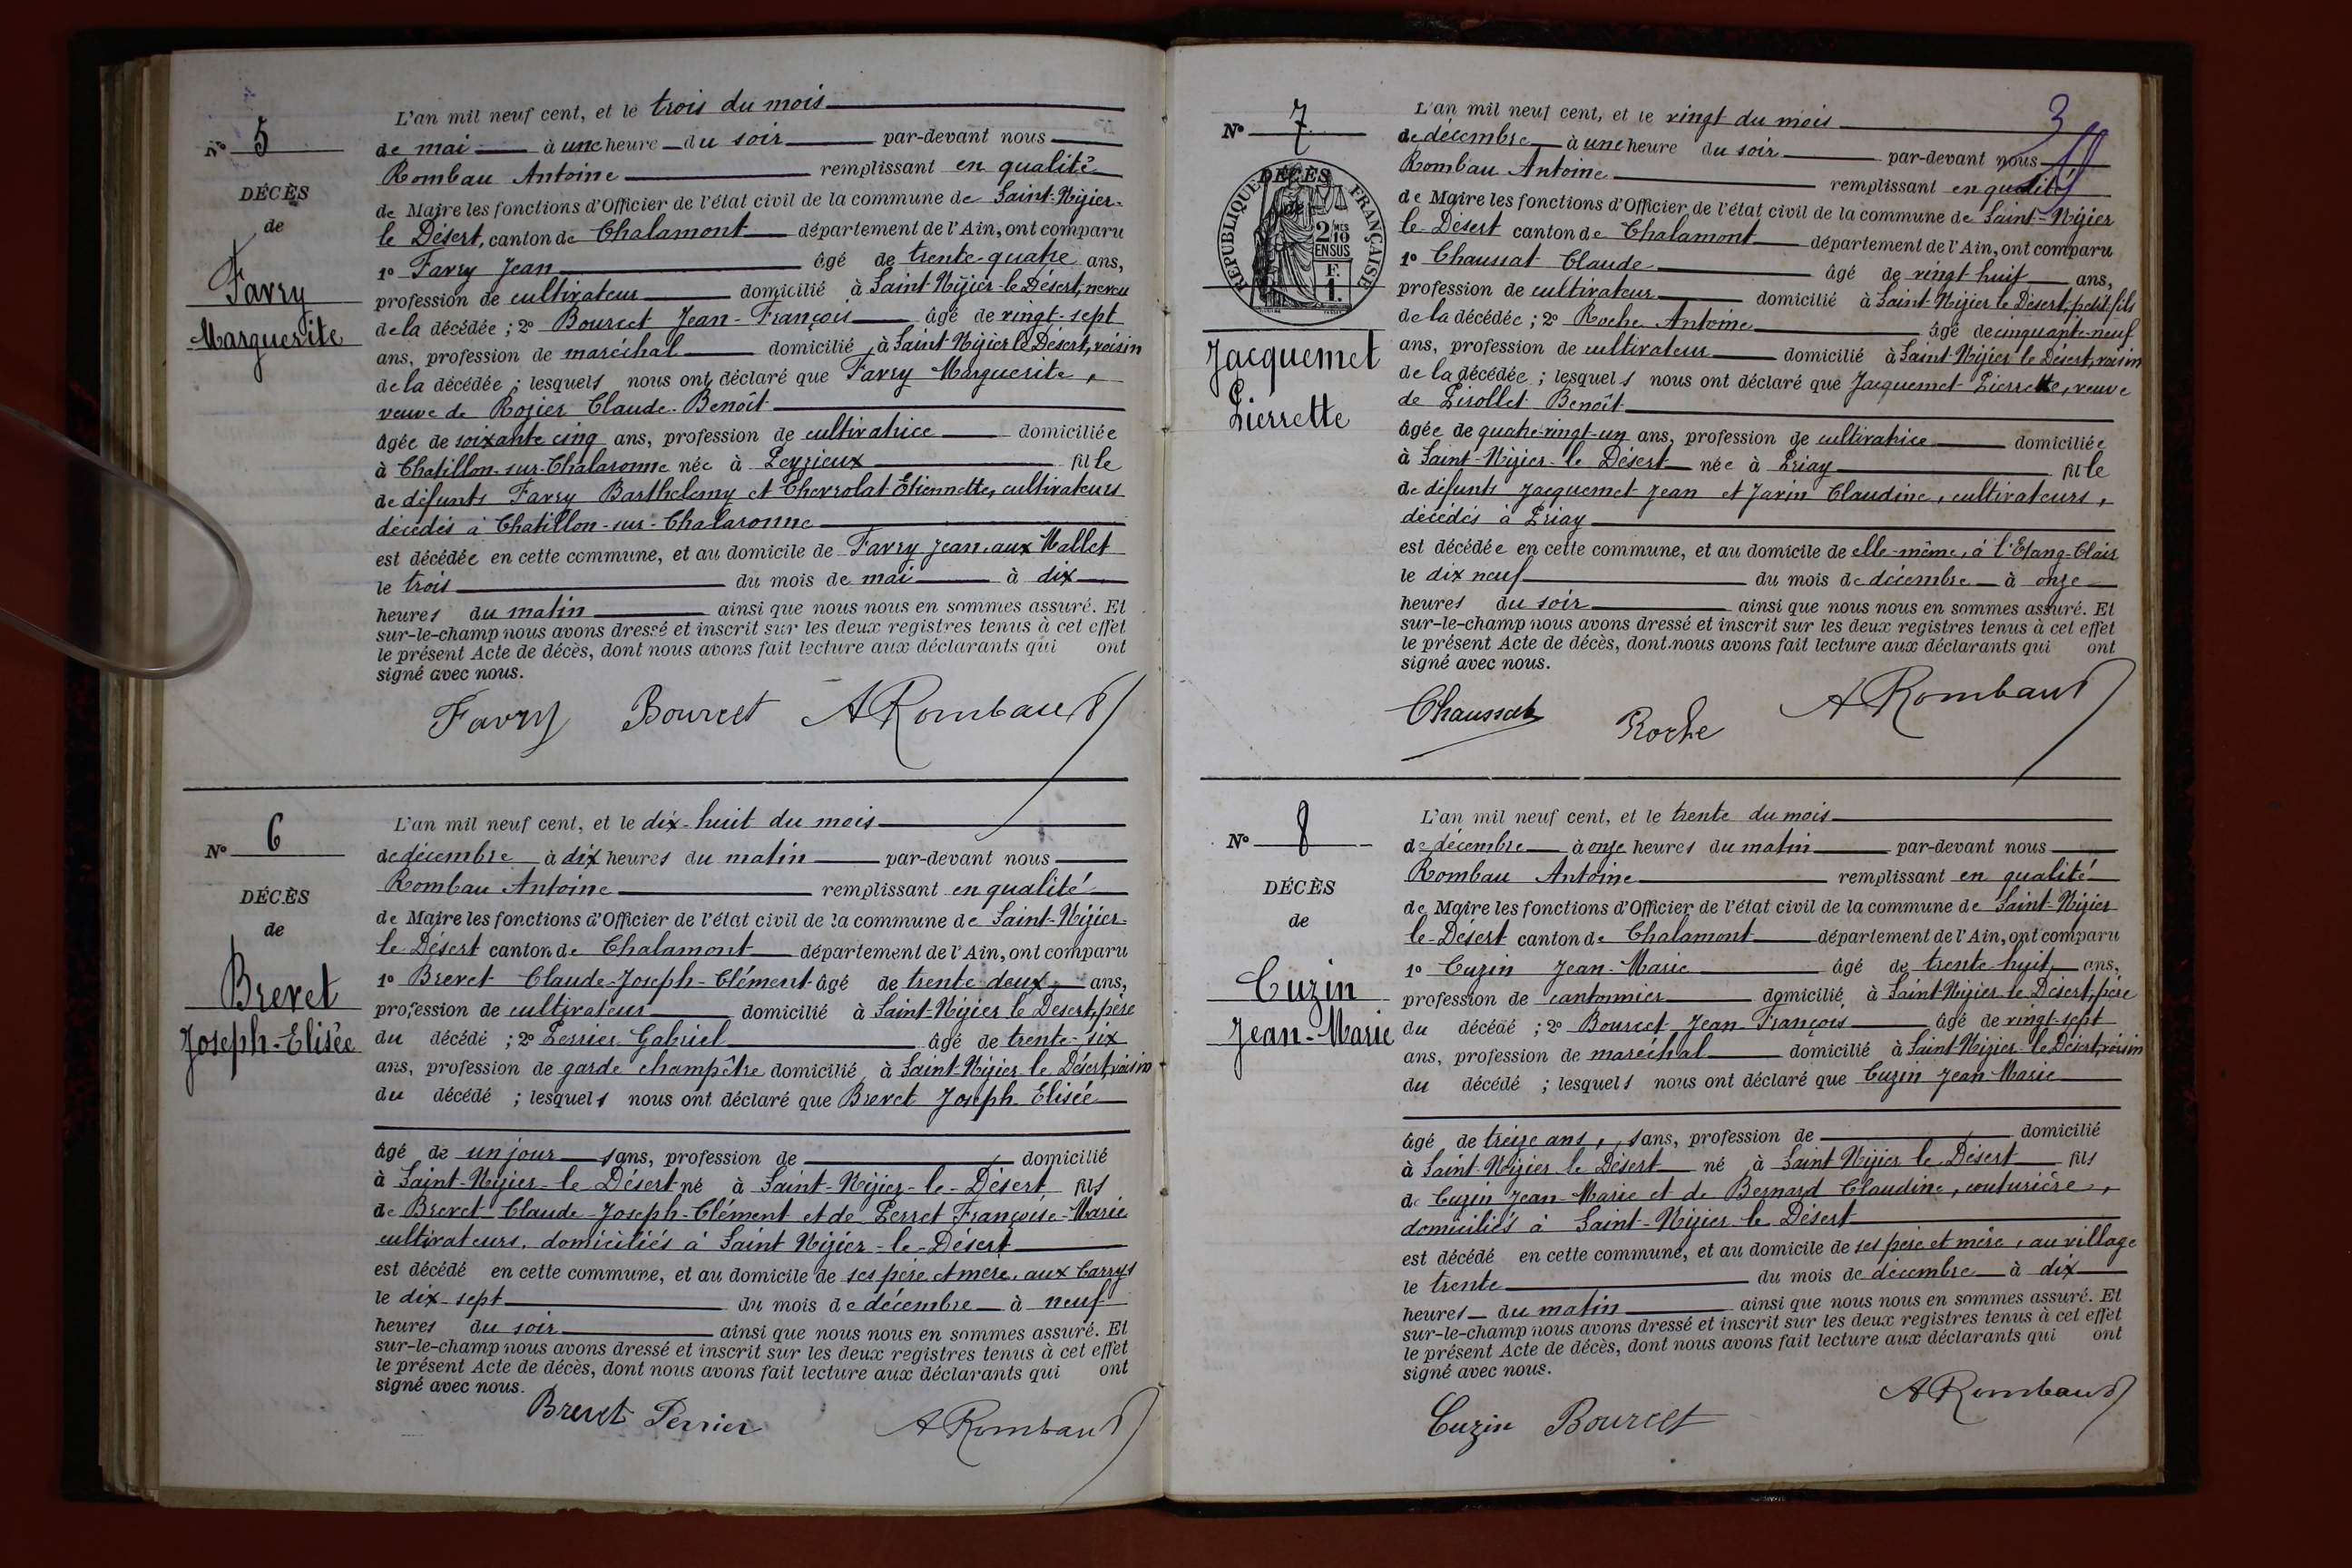 N° 5
DÉCÈS
de
Favry
Marguerite
L'an mil neuf cent, et le trois du mois
de mai à une heure du soir par-devant nous
Rombau Antoine remplissant en qualité
de Maire les fonctions d'Officier de l'état civil de la commune de Saint-Nizier-
le Désert, canton de Chalamont département de l'Ain, ont comparu
1° Favry Jean âgé de trente-quatre ans,
profession de cultivateur domicilié à Saint-Nizier-le Désert, neveu
de la décédée ; 2° Bourcet Jean-François âgé de vingt-sept
ans, profession de maréchal domicilié à Saint-Nizier le Désert, voisin
de la décédée ; lesquels nous ont déclaré que Favry Marguerite,
veuve de Rozier Claude-Benoît
âgée de soixante cinq ans, profession de cultivatrice domiciliée
à Chatillon-sur-Chalaronne née à Peyzieux fille
de défunts Favry Barthelemy et Chevrolat Etiennette, cultivateurs
décédés à Chatillon-sur-Chalaronne
est décédée en cette commune, et au domicile de Favry Jean, aux Mallet
le trois du mois de mai à dix
heures du matin ainsi que nous nous en sommes assuré. Et
sur-le-champ nous avons dressé et inscrit sur les deux registres tenus à cet effet
le présent Acte de décès, dont nous avons fait lecture aux déclarants qui ont
signé avec nous.
Favry Bourcet A Rombaud
N° 6
DÉCÈS
de
Brevet
Joseph-Elisée
L'an mil neuf cent, et le dix-huit du mois
de décembre à dix heures du matin par-devant nous
Rombau Antoine remplissant en qualité
de Maire les fonctions d'Officier de l'état civil de la commune de Saint-Nizier-
le Désert canton de Chalamont département de l'Ain, ont comparu
1° Brevet Claude-Joseph-Clément âgé de trente deux ans,
profession de cultivateur domicilié à Saint-Nizier le Desert, père
du décédé ; 2° Perrier Gabriel âgé de trente-six
ans, profession de garde champêtre domicilié à Saint-Nizier le Désert, voisin
du décédé ; lesquels nous ont déclaré que Brevet Joseph Elisée
âgé de un jour sans, profession de domicilié
à Saint-Nizier-le Désert né à Saint-Nizier-le-Désert fils
de Brevet Claude-Joseph-Clément et de Perret Françoise-Marie
cultivateurs, domiciliés à Saint Nizier-le-Désert
est décédé en cette commune, et au domicile de ses père et mère, aux Carrys
le dix-sept du mois de décembre à neuf
heures du soir ainsi que nous nous en sommes assuré. Et
sur-le-champ nous avons dressé et inscrit sur les deux registres tenus à cet effet
le présent Acte de décès, dont nous avons fait lecture aux déclarants qui ont
signé avec nous.
Brevet Perrier A Rombaud
3
N° 7
RÉPUBLIQUE FRANÇAISE
DÉCÈS
de
2/10 MES
EN SUS
F.
1.
Jacquemet
Pierrette
L'an mil neuf cent, et le vingt du mois
de décembre à une heure du soir par-devant nous
Rombau Antoine remplissant en qualité
de Maire les fonctions d'Officier de l'état civil de la commune de Saint-Nizier
le Désert canton de Chalamont département de l'Ain, ont comparu
1° Chaussat Claude âgé de vingt-huit ans,
profession de cultivateur domicilié à Saint-Nizier le Désert, petit-fils
de la décédée ; 2° Roche Antoine âgé de cinquante-neuf
ans, profession de cultivateur domicilié à Saint-Nizier le Désert, voisin
de la décédée ; lesquels nous ont déclaré que Jacquemet Pierrette, veuve
de Pirollet Benoît
âgée de quatre-vingt-un ans, profession de cultivatrice domiciliée
à Saint-Nizier-le Désert née à Priay fille
de défunts Jacquemet Jean et Javin Claudine, cultivateurs,
décédés à Priay
est décédée en cette commune, et au domicile de elle-même, à l'Etang-Clair
le dix neuf du mois de décembre à onze
heures du soir ainsi que nous nous en sommes assuré. Et
sur-le-champ nous avons dressé et inscrit sur les deux registres tenus à cet effet
le présent Acte de décès, dont nous avons fait lecture aux déclarants qui ont
signé avec nous.
Chaussat Roche A Rombaud
N° 8
DÉCÈS
de
Cuzin
Jean-Marie
L'an mil neuf cent, et le trente du mois
de décembre à onze heures du matin par-devant nous
Rombau Antoine remplissant en qualité
de Maire les fonctions d'Officier de l'état civil de la commune de Saint-Nizier
le-Désert canton de Chalamont département de l'Ain, ont comparu
1° Cuzin Jean-Marie âgé de trente-huit ans,
profession de cantonnier domicilié à Saint-Nizier le Désert, père
du décédé ; 2° Bourcet Jean-François âgé de vingt-sept
ans, profession de maréchal domicilié à Saint-Nizier-le Désert, voisin
du décédé ; lesquels nous ont déclaré que Cuzin Jean-Marie
âgé de treize ans, sans, profession de domicilié
à Saint-Nizier le Désert né à Saint Nizier le Désert fils
de Cuzin Jean-Marie et de Bernard Claudine, couturière,
domiciliés à Saint-Nizier le Désert
est décédé en cette commune, et au domicile de ses père et mère, au village
le trente du mois de décembre à dix
heures du matin ainsi que nous nous en sommes assuré. Et
sur-le-champ nous avons dressé et inscrit sur les deux registres tenus à cet effet
le présent Acte de décès, dont nous avons fait lecture aux déclarants qui ont
signé avec nous.
Cuzin Bourcet A Rombaud